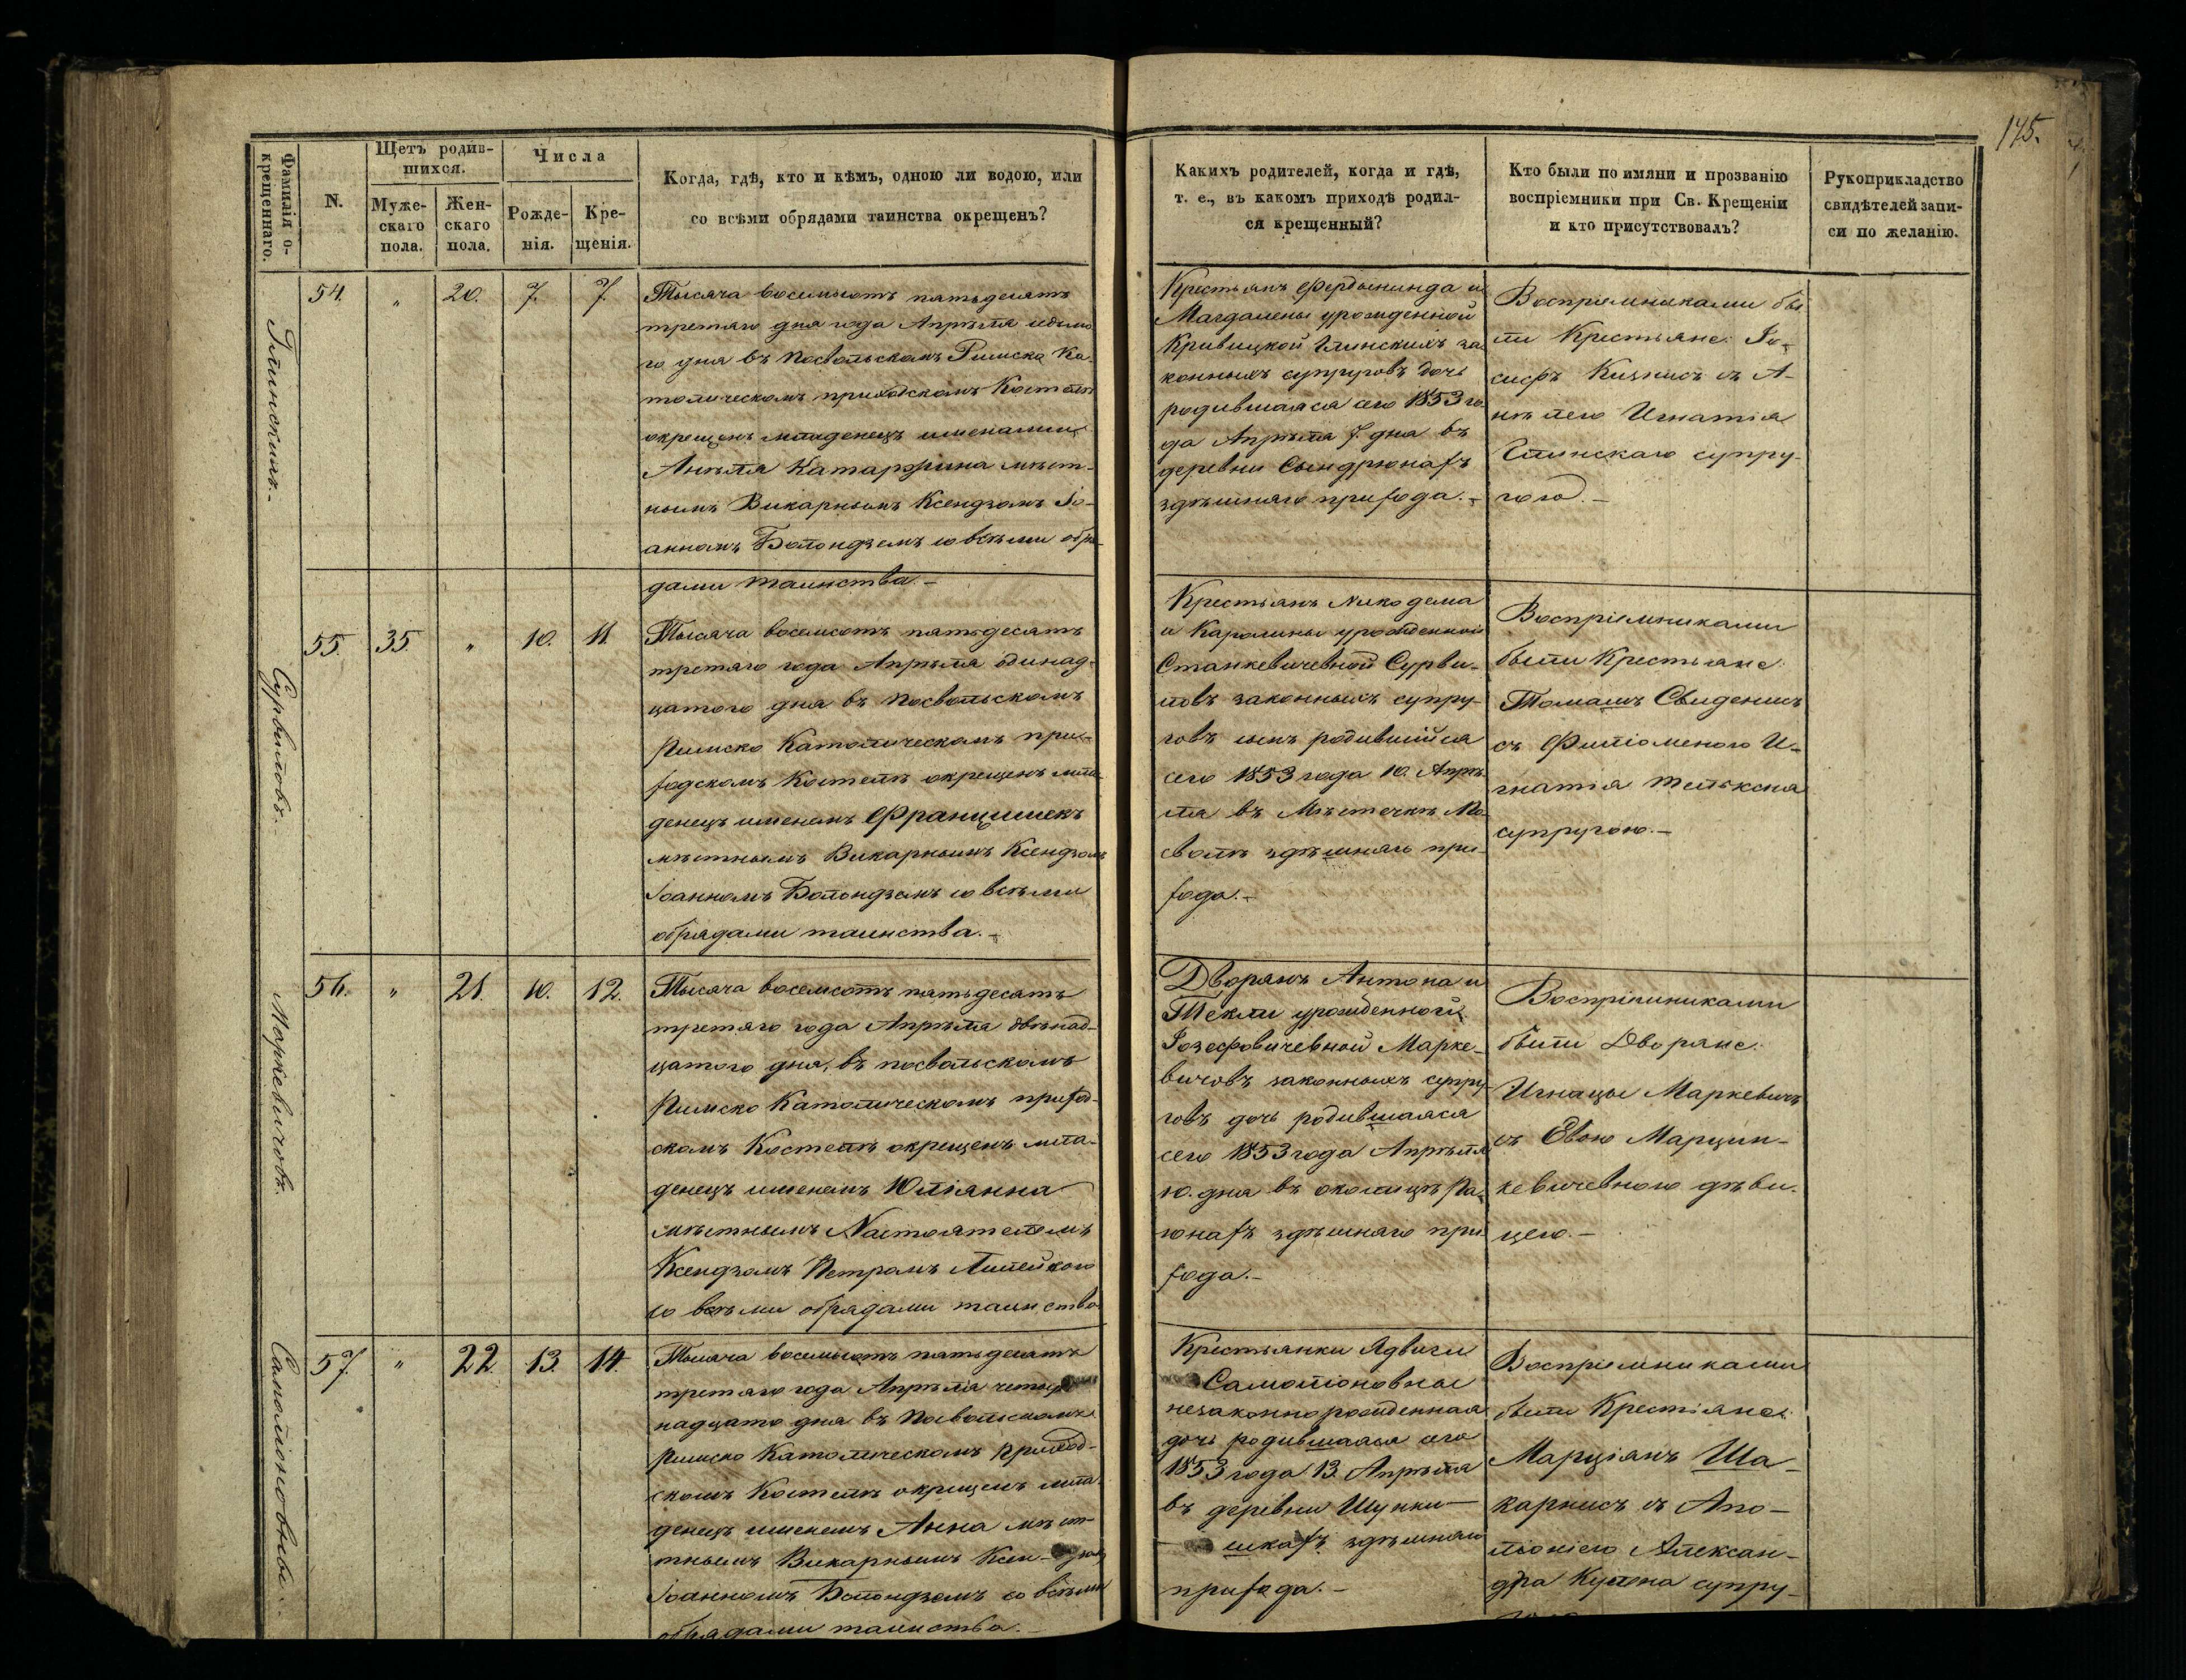 175.
Фамилія о-
крещеннаго.
N.
Щетъ родив-
шихся.
Муже-
скаго
пола.
Жен-
скаго
пола.
Числа
Рожде-
нія.
Кре-
щенія.
Когда, гдѣ, кто и кѣмъ, одною ли водою, или
со всѣми обрядами таинства окрещенъ?
Какихъ родителей, когда и гдѣ,
т. е., въ какомъ приходѣ родил-
ся крещенный?
Кто были по имяни и прозванію
воспріемники при Св. Крещеніи
и кто присутствовалъ?
Рукоприкладство
свидѣтелей запи-
си по желанію.
Глинскихъ.-
54.
"
20.
7.
7.
Тысяча восемьсотъ пятьдесятъ
третяго дня года Апрѣля седьмо
го дня въ Посвольскомъ Римско Ка-
толическомъ приходскомъ Костелѣ
окрещенъ младенецъ именами
Анѣля Катаржина мѣст-
нымъ Викарнымъ Ксендзомъ Іо-
анномъ Болондземъ со всѣми обря-
дами таинства.-
Крестьянъ Фердынанда и
Магдалены урожденной
Кривицкой Глинскихъ за
конныхъ супруговъ дочь
родившаяся сего 1853 го
да Апрѣля 7. дня въ
деревни Сындрюнахъ
здѣшняго прихода.-
Воспріемниками бы
ли Крестьяне: Іо-
сифъ съ А-
нѣлею Игнатія
супру-
гою.-
Сурвыловъ.
55.
35.
"
10.
11.
Тысяча восемсотъ пятьдесятъ
третяго года Апрѣля одинад-
цатого дня въ Посвольскомъ
Римско Католическомъ при-
ходскомъ Костелѣ окрещенъ мла-
денецъ именемъ Францишекъ
мѣстнымъ Викарнымъ Ксендзомъ
Іоанномъ Болондземъ со всѣми
обрядами таинства.-
Крестьянъ Никодема
и Каролины урожденной
Станкевичевной Сурви-
ловъ законныхъ супру-
говъ сынъ родившійся
сего 1853 года 10. Апрѣ
ля въ Мѣстечкѣ По
сволѣ здѣшняго при-
хода.-
Воспріемниками
были Крестьяне:
Томашъ Свиденисъ
съ Филіоменою И-
гнатія
супругою.-
Маркевичовъ.
56.
"
21.
10.
12.
Тысяча восемсотъ пятьдесятъ
третяго года Апрѣля двѣнад-
цатого дня, въ посвольскомъ
Римско Католическомъ приход-
скомъ Костелѣ окрещенъ мла-
денецъ именемъ Юліянна
мѣстнымъ Настоятелемъ
Ксендзомъ Петромъ
со всѣми обрядами таинства
Дворянъ Антона и
Текли урожденной
Іозефовичевной Марке-
вичовъ законныхъ супру-
говъ дочь родившаяся
сего 1853 года Апрѣля
10. дня въ околицѣ Ра-
юнахъ здѣшняго при
хода.-
Воспріемниками
были Дворяне:
Игнацы Маркевичъ
съ Евою Марцин-
кевичевною дѣви-
цею.-
Самоліоновны.
57.
"
22.
13.
14.
Тысяча восемьсотъ пятьдесятъ
третяго года Апрѣля четыр
надцато дня въ Посвольскомъ
Римско Католическомъ Приход-
скомъ Костелѣ окрещенъ мла-
денецъ именемъ Анна мѣст-
тнымъ Викарнымъ Ксен- дзомъ
Іоанномъ Болондземъ со всѣми
обрядами таинства.-
Крестьянки Ядвиги
Самоліоновны
незаконно рожденная
дочь родившаяся сего
1853 года 13. Апрѣля
въ деревни Шунки-
шкахъ здѣшняго
прихода.-
Воспріемниками
были Крестіяне:
Марціянъ Ша-
карнисъ съ Апо-
лоніею Алексан-
дра супру-